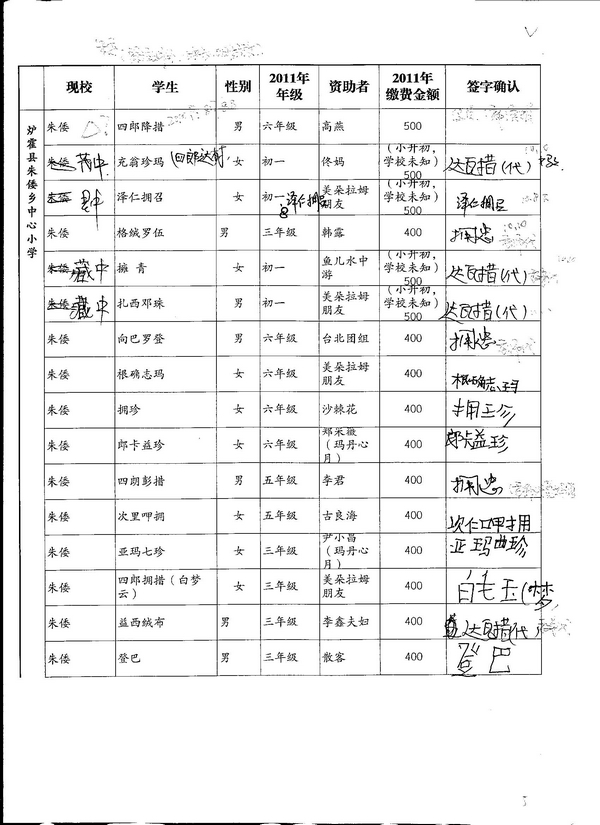 现校 学生 性别 2011年年级 资助者 2011年缴费金额 签字确认
炉霍县朱倭乡中心小学
朱倭 四郎降措 男 六年级 高燕 500
朱倭 中 充翁珍玛 (四郎达 女 初一 佟妈 (小升初,学校未知) 500 达瓦措(代)
朱倭 中 泽仁拥召 女 初一 泽仁拥 美朵拉姆朋友 (小升初,学校未知) 500 泽仁拥
朱倭 格绒罗伍 男 三年级 韩露 400 拥忠
朱倭 藏中 擁青 女 初一 鱼儿水中游 (小升初,学校未知) 500 达瓦措(代)
朱倭 藏中 扎西邓珠 男 初一 美朵拉姆朋友 (小升初,学校未知) 500 达瓦措(代)
朱倭 向巴罗登 男 六年级 台北团组 400 拥忠
朱倭 根确志玛 女 六年级 美朵拉姆朋友 400 根确志玛
朱倭 拥珍 女 六年级 沙棘花 400 拥珍
朱倭 郎卡益珍 女 六年级 郑采薇(玛丹心月) 400 郎卡益珍
朱倭 四朗彭措 男 五年级 李君 400 拥忠
朱倭 次里呷拥 女 五年级 古良海 400 次仁呷拥
朱倭 亚玛七珍 女 三年级 尹小昌(玛丹心月) 400 亚玛曲珍
朱倭 四郎拥措(白梦云) 女 三年级 美朵拉姆朋友 400 白毛玉(梦
朱倭 益西绒布 男 三年级 李鑫夫妇 400 达瓦措(代)
朱倭 登巴 男 三年级 散客 400 登巴